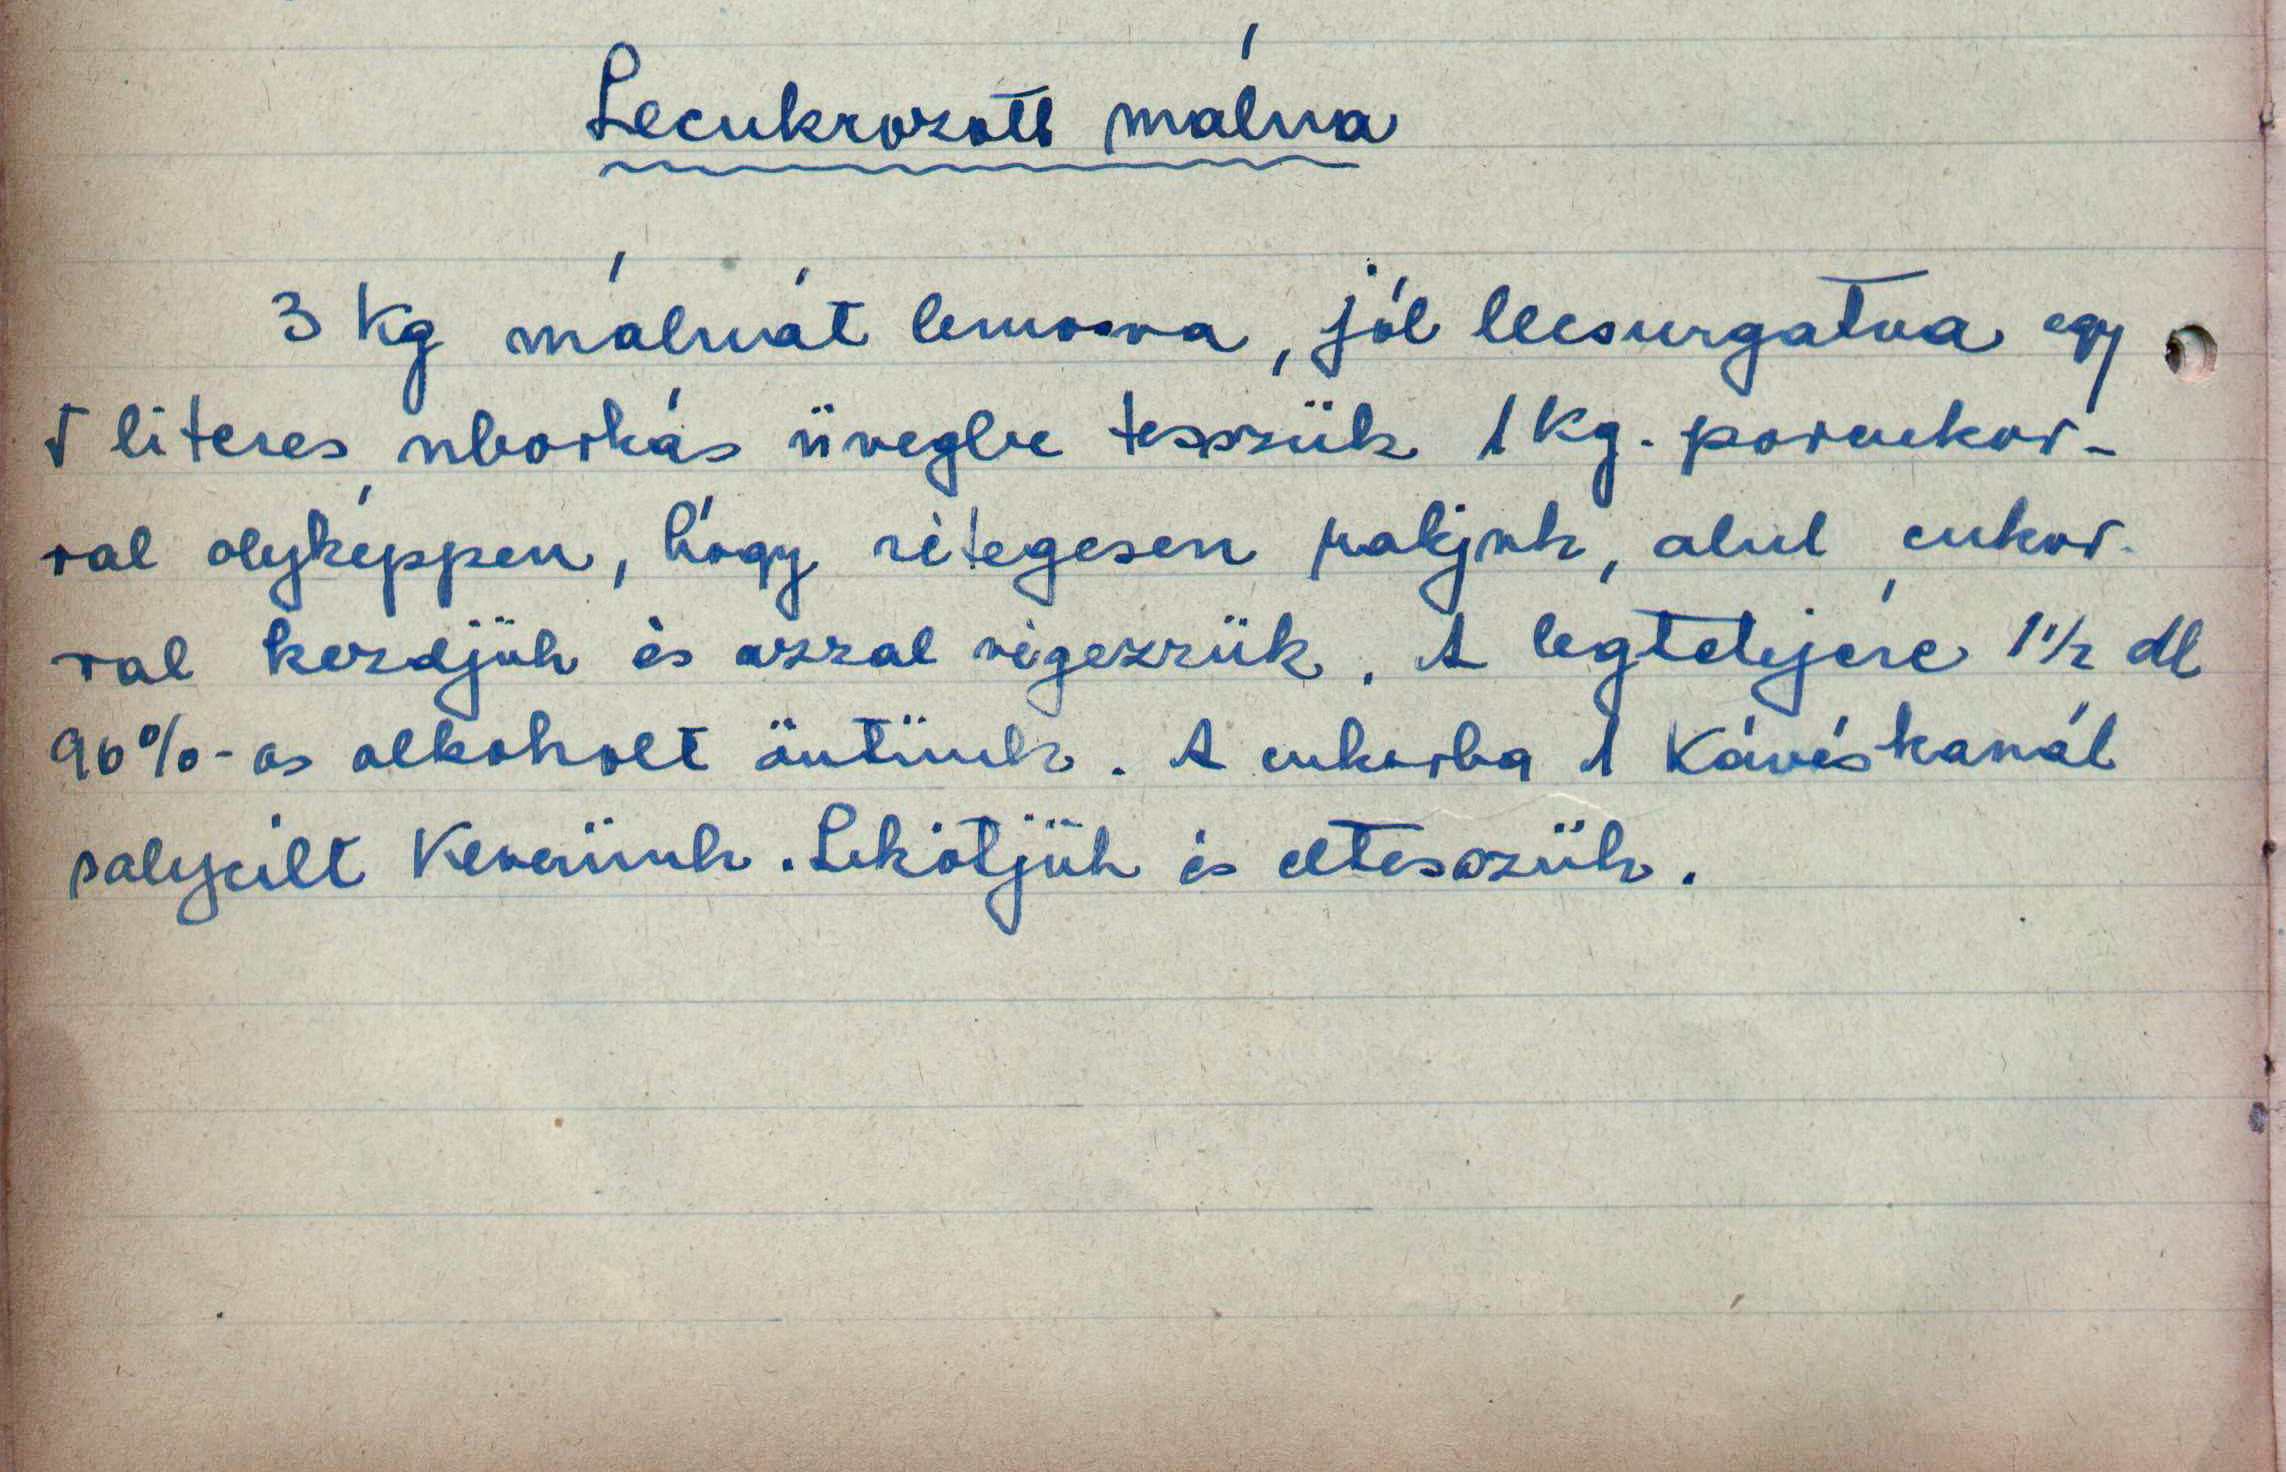 Lecukrozott málna
3 kg málnát lemosva, jól lecsurgatva egy
5 literes uborkás üvegbe tesszük 1 kg. porcukor-
ral olyképpen, hogy rétegesen rakjuk, alul cukor-
ral kezdjük és azzal végezzük. A legtetejére 1 1/2 dl
96%-os alkoholt öntünk. A cukorba 1 kávéskanál
salycilt keverünk. Lekötjük és eltesszük.